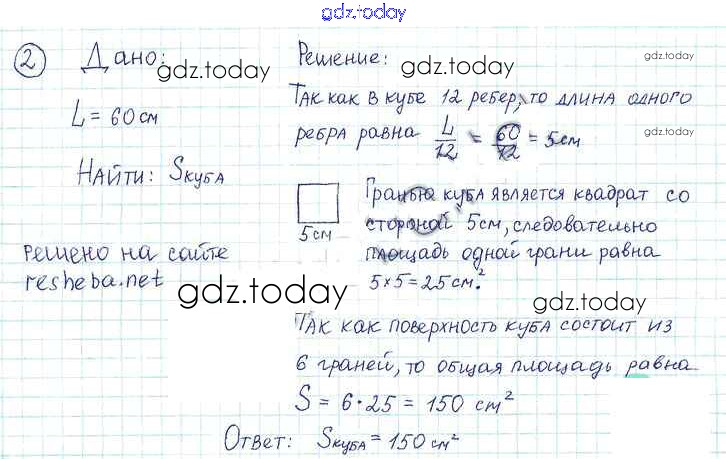 gdz.today
2 Дано:
gdz.today
L = 60 см
Найти: Sкуба
решено на сайте
resheba.net
gdz.today
Решение:
gdz.today
gdz.today
Так как в кубе 12 ребер, то длина одного
ребра равна L/12 = 60/12 = 5 см
gdz.today
5 см
Гранью куба является квадрат со
стороной 5 см, следовательно
площадь одной грани равна
5×5=25 см².
gdz.today
Так как поверхность куба состоит из
6 граней, то общая площадь равна
S = 6·25 = 150 см²
Ответ: Sкуба = 150 см²